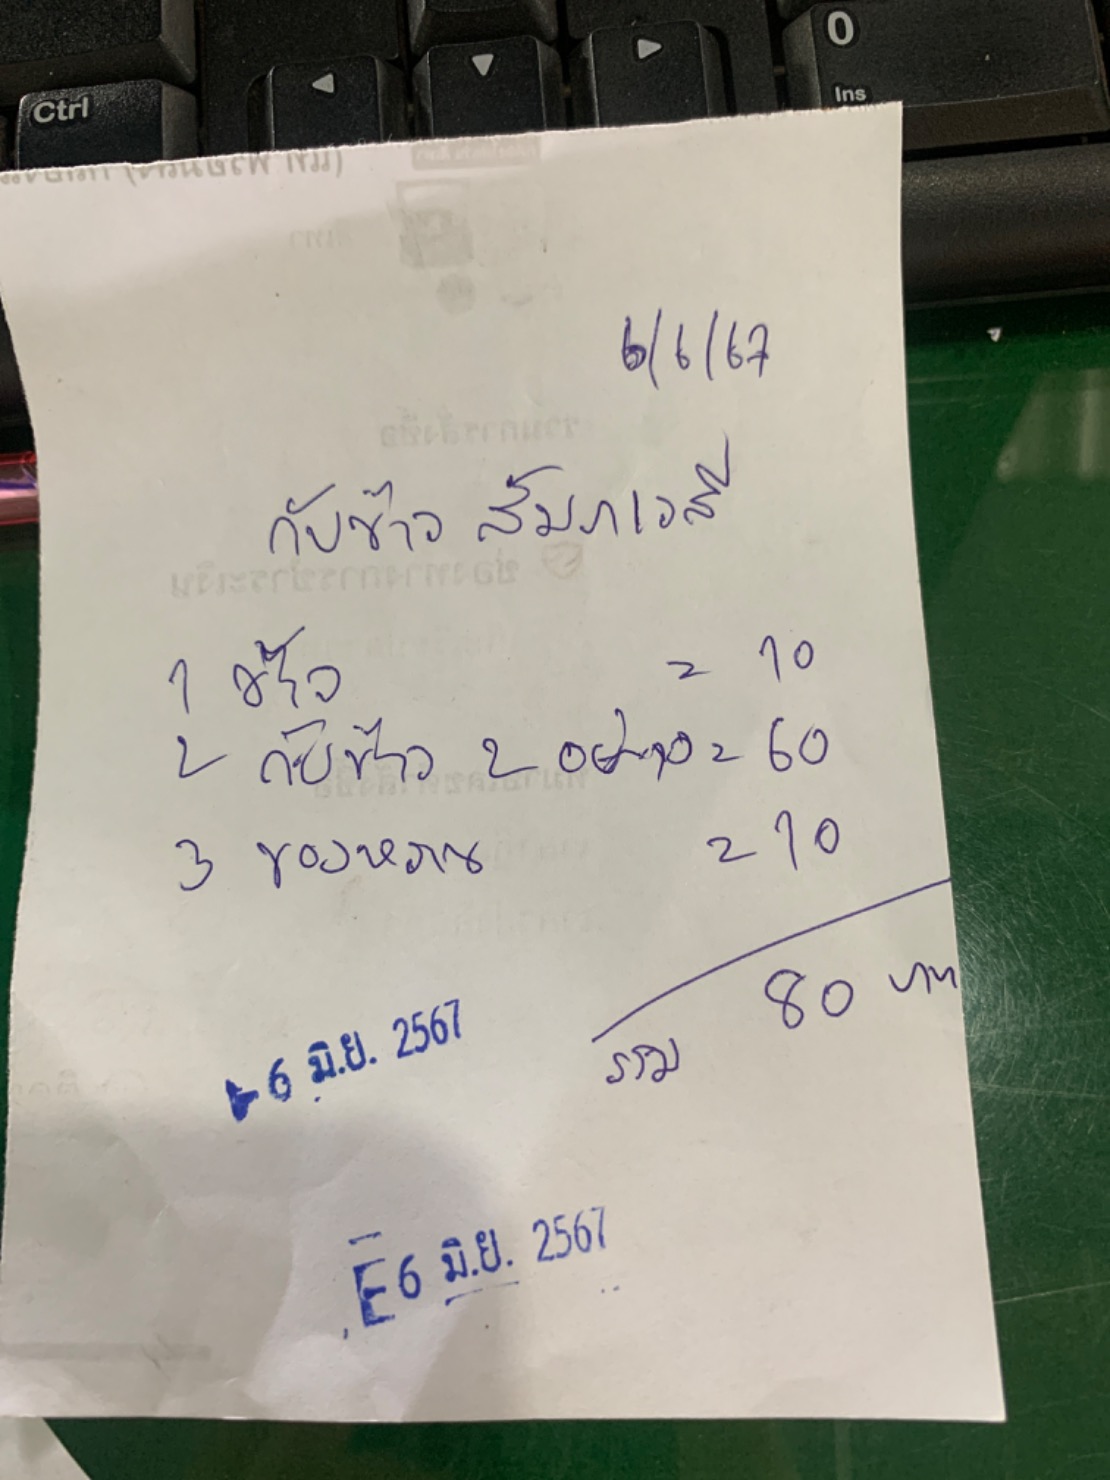 Ctrl
0
Ins
6/6/67
กับข้าว สัมภเวสี
1 ข้าว = 10
2 กับข้าว 2 อย่าง = 60
3 ของหวาน = 10
80 บาท
รวม
6 มิ.ย. 2567
6 มิ.ย. 2567